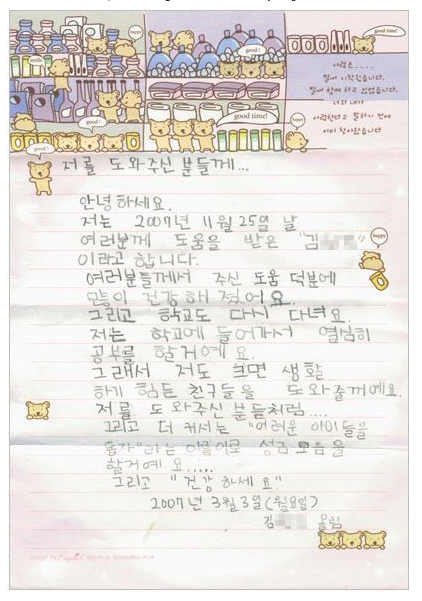 happy
good time!
smile
good!
good time!
good!
happy
good!
사랑은....
벌써 시작됐습니다.
벌써 함께 하고 있었습니다.
너와 내가
사랑한다고 말하기 전에
이미 찾아왔습니다
저를 도와주신 분들께...
안녕하세요.
저는 2007년 11월 25일 날
여러분께 도움을 받은 "김
happy
이라고 합니다.
여러분들께서 주신 도움 덕분에
몸이 건강해 졌어요.
그리고 학교도 다시 다녀요.
저는 학교에 들어가서 열심히
공부를 할거예요.
그래서 저도 크면 생활
하기 힘든 친구들을 도와줄꺼예요.
저를 도와주신 분들처럼....
끄리고 더 커서는 "어려운 아이들을
돕자"라는 이름으로 성금 모음을
할거예요.....
그리고 "건강하세요."
2007년 3월 3일(월요일)
김 올림